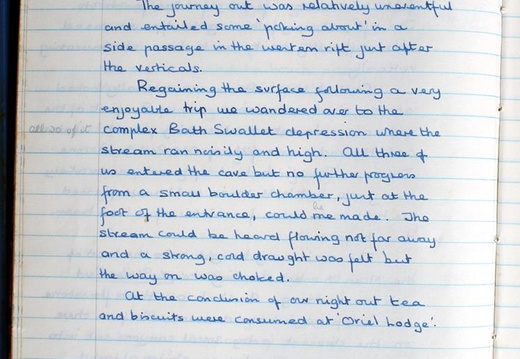 The journey out was relatively uneventful
and entailed some 'poking about' in a
side passage in the western rift just after
the verticals.
Regaining the surface following a very
enjoyable trip we wandered over to the
complex Bath Swallet depression where the
stream ran noisily and high. All three of
us entered the cave but no further progress
from a small boulder chamber, just at the
foot of the entrance, could be me made. The
stream could be heard flowing not far away
and a strong, cold draught was felt but
the way on was choked.
At the conclusion of our night out tea
and biscuits were consumed at 'Oriel Lodge'.